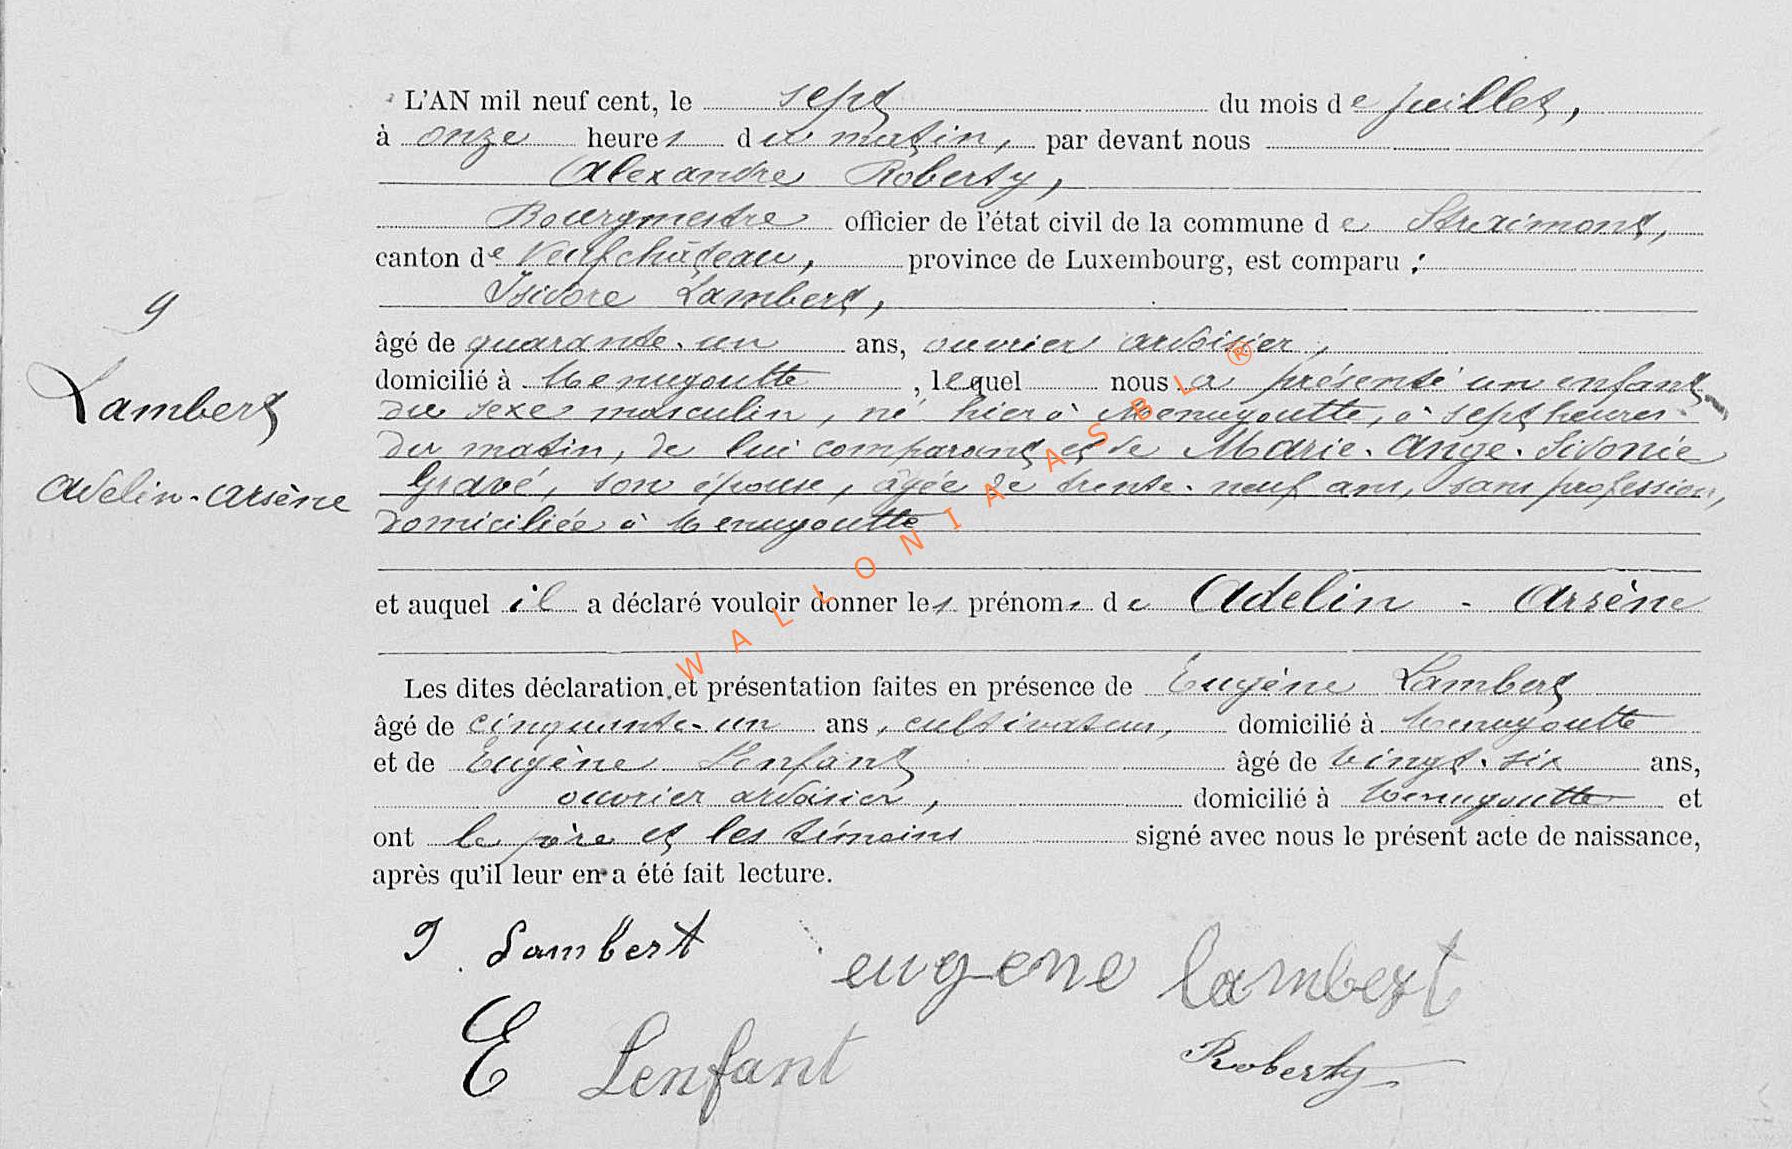 L'AN mil neuf cent, le sept du mois de juillet,
à onze heures du matin, par devant nous
Alexandre Roberty,
Bourgmestre officier de l'état civil de la commune de Straimont,
canton de Neufchâteau, province de Luxembourg, est comparu :
Isidore Lambert,
9
âgé de quarante-un ans, ouvrier ardoisier,
domicilié à Menugoutte, lequel nous a présenté un enfant
Lambert
du sexe masculin, né hier à Menugoutte, à sept heures
du matin, de lui comparant et de Marie-Ange-Sidonie
Adelin-Arsène
Gravé, son épouse, âgée de trente-neuf ans, sans profession,
domiciliée à Menugoutte
et auquel il a déclaré vouloir donner les prénoms de Adelin - Arsène
Les dites déclaration et présentation faites en présence de Eugène Lambert
âgé de cinquante-un ans, cultivateur, domicilié à Menugoutte
et de Eugène Lenfant âgé de vingt-six ans,
ouvrier ardoisier, domicilié à Menugoutte et
ont le père et les témoins signé avec nous le présent acte de naissance,
après qu'il leur en a été fait lecture.
J. Lambert
eugene lambert
E Lenfant
Roberty
WALLONIA ASBL ®